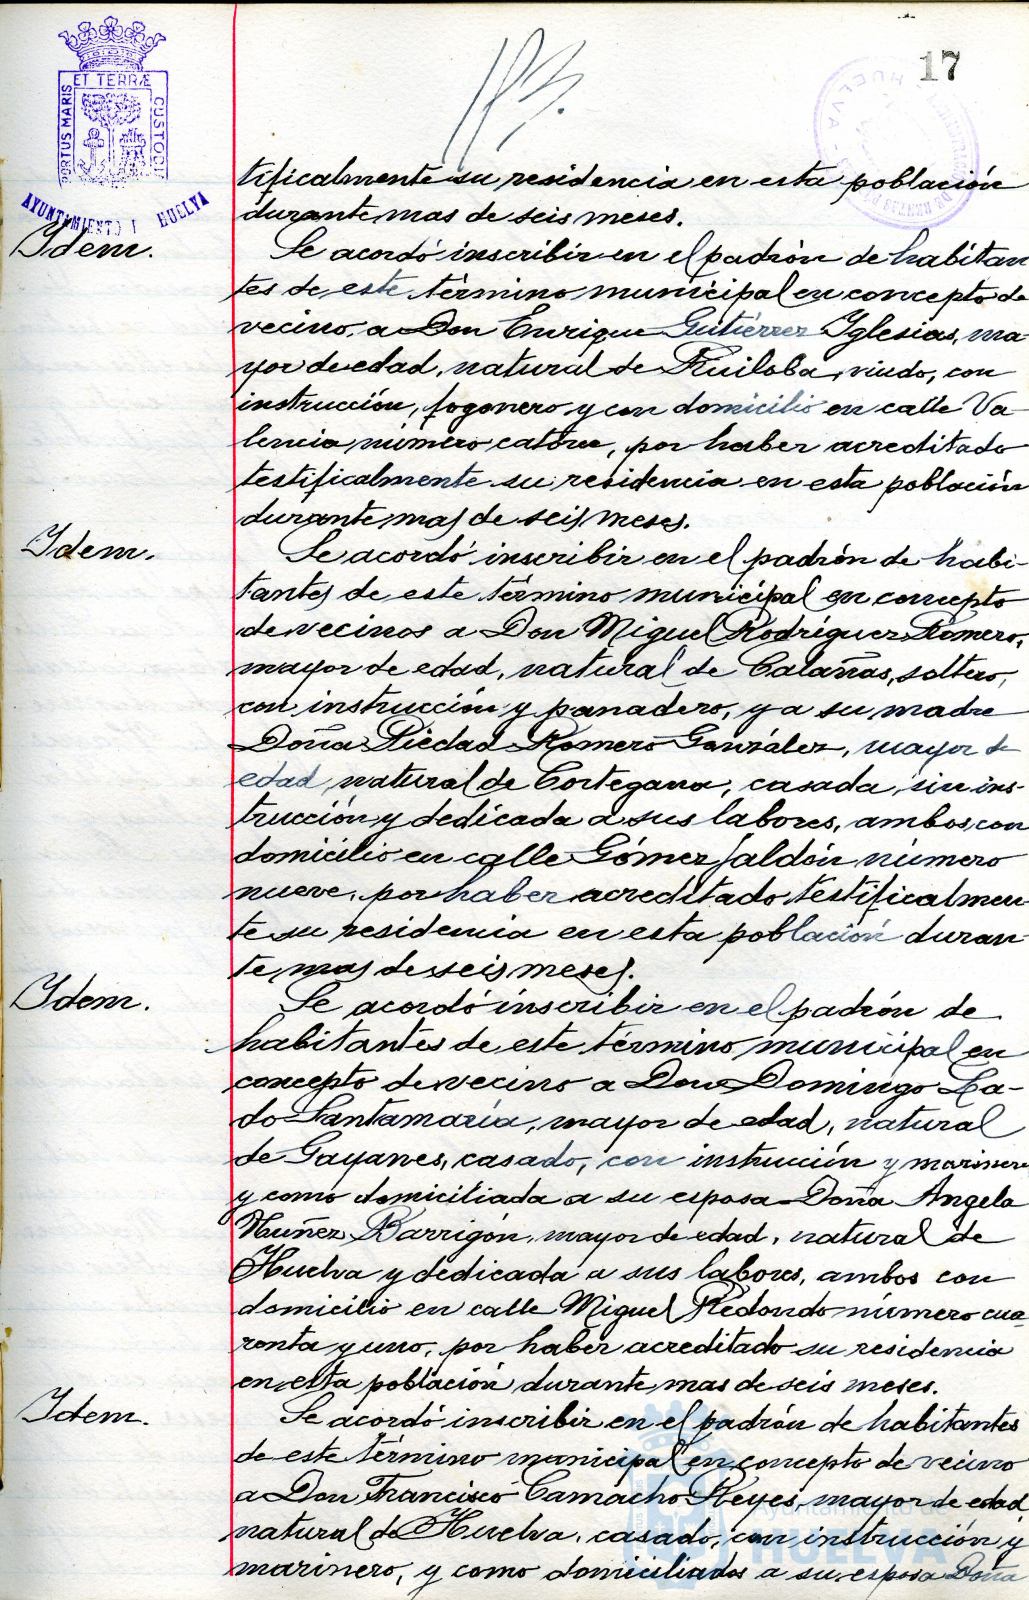 17
PORTUS MARIS ET TERRÆ CUSTODIA
AYUNTAMIENTO HUELVA
tificalmente su residencia en esta población
durante mas de seis meses.
Idem.
Se acordó inscribir en el padrón de habitan
tes de este término municipal en concepto de
vecino a Don Enrique Gutiérrez Iglesias, ma-
yor de edad, natural de Ruiloba, viudo, con
instrucción, fogonero y con domicilio en calle Va-
lencia número catorce, por haber acreditado
testificalmente su residencia en esta población
durante mas de seis meses.
Idem.
Se acordó inscribir en el padrón de habi-
tantes de este término municipal en concepto
de vecinos a Don Miguel Rodríguez Romero,
mayor de edad, natural de Calañas, soltero,
con instrucción y panadero, y a su madre
Doña Piedad Romero González, mayor de
edad, natural de Cortegana, casada, sin ins-
trucción y dedicada a sus labores, ambos con
domicilio en calle Gómez Jaldón número
nueve, por haber acreditado testificalmen-
te su residencia en esta población duran-
te mas de seis meses.
Idem.
Se acordó inscribir en el padrón de
habitantes de este término municipal en
concepto de vecino a Don Domingo La-
do Santamaría, mayor de edad, natural
de Gayanes, casado, con instrucción y marinero
y como domiciliada a su esposa Doña Angela
Nuñez Barrigón, mayor de edad, natural de
Huelva y dedicada a sus labores, ambos con
domicilio en calle Miguel Redondo número cua-
renta y uno, por haber acreditado su residencia
en esta población durante mas de seis meses.
Idem.
Se acordó inscribir en el padrón de habitantes
de este término municipal en concepto de vecino
a Don Francisco Camacho Reyes, mayor de edad
natural de Huelva, casado, con instrucción y
marinero, y como domiciliados a su esposa Doña
Ayuntamiento de
HUELVA